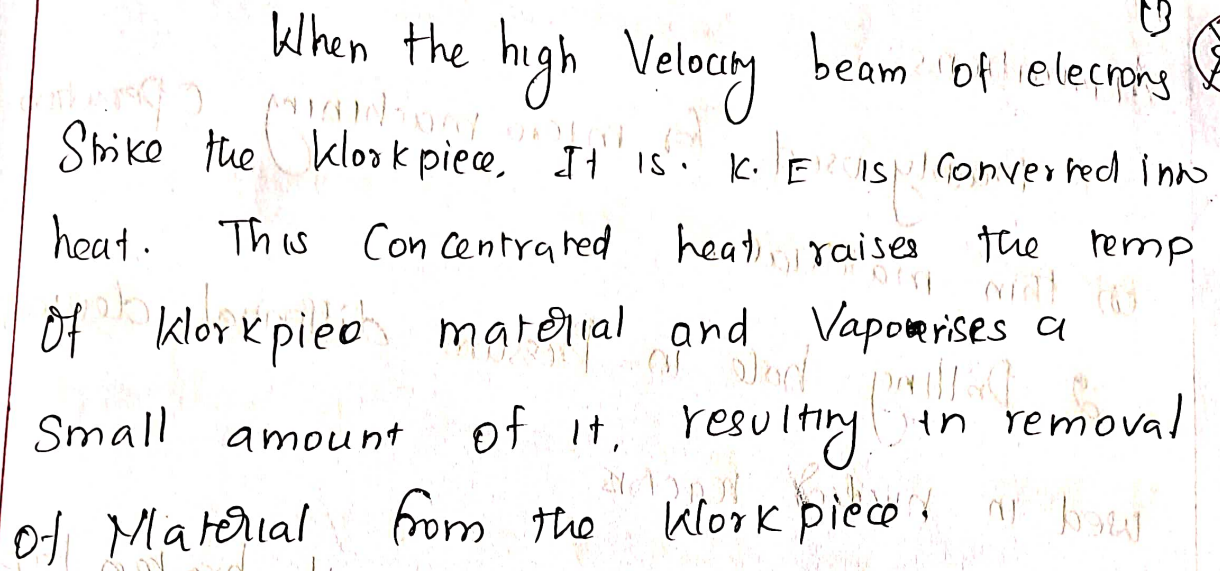 When the high Velocity beam of elecrons
Strike the Workpiece, It is. K.E is Converted into
heat. This Concentrated heat raises the temp
Of Workpiece material and Vapourises a
Small amount of it, resulting in removal
of Material from the Workpiece.